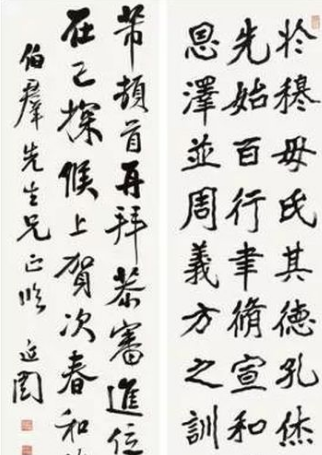 於穆毋氏其德孔烋
先始百行聿脩宣和
恩澤並周義方之訓
芾頓首再拜恭審進位
在候上賀次春和
伯羣先生兄正臨